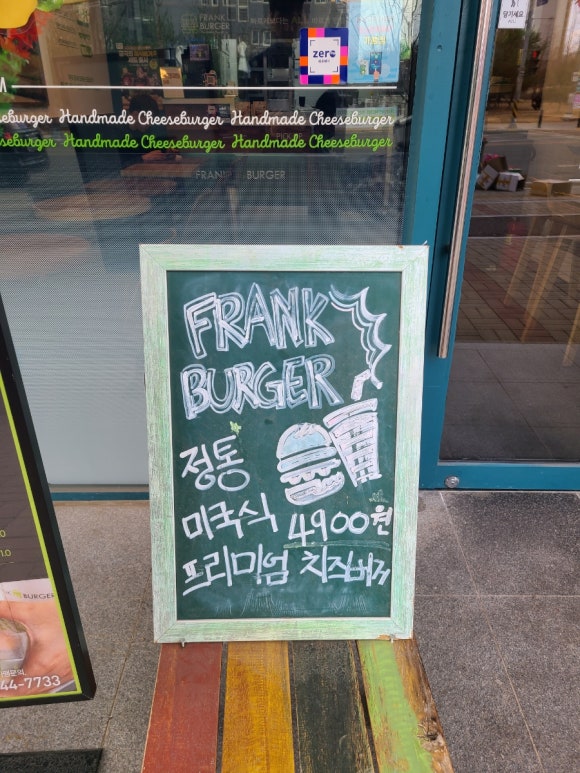 FRANK
BURGER
zero
Handmade Cheeseburger Handmade Cheeseburger
Handmade Cheeseburger Handmade Cheeseburger
FRANK BURGER
FRANK
BURGER
정통
미국식 4900원
프리미엄 치즈버거
BURGER
44-7733